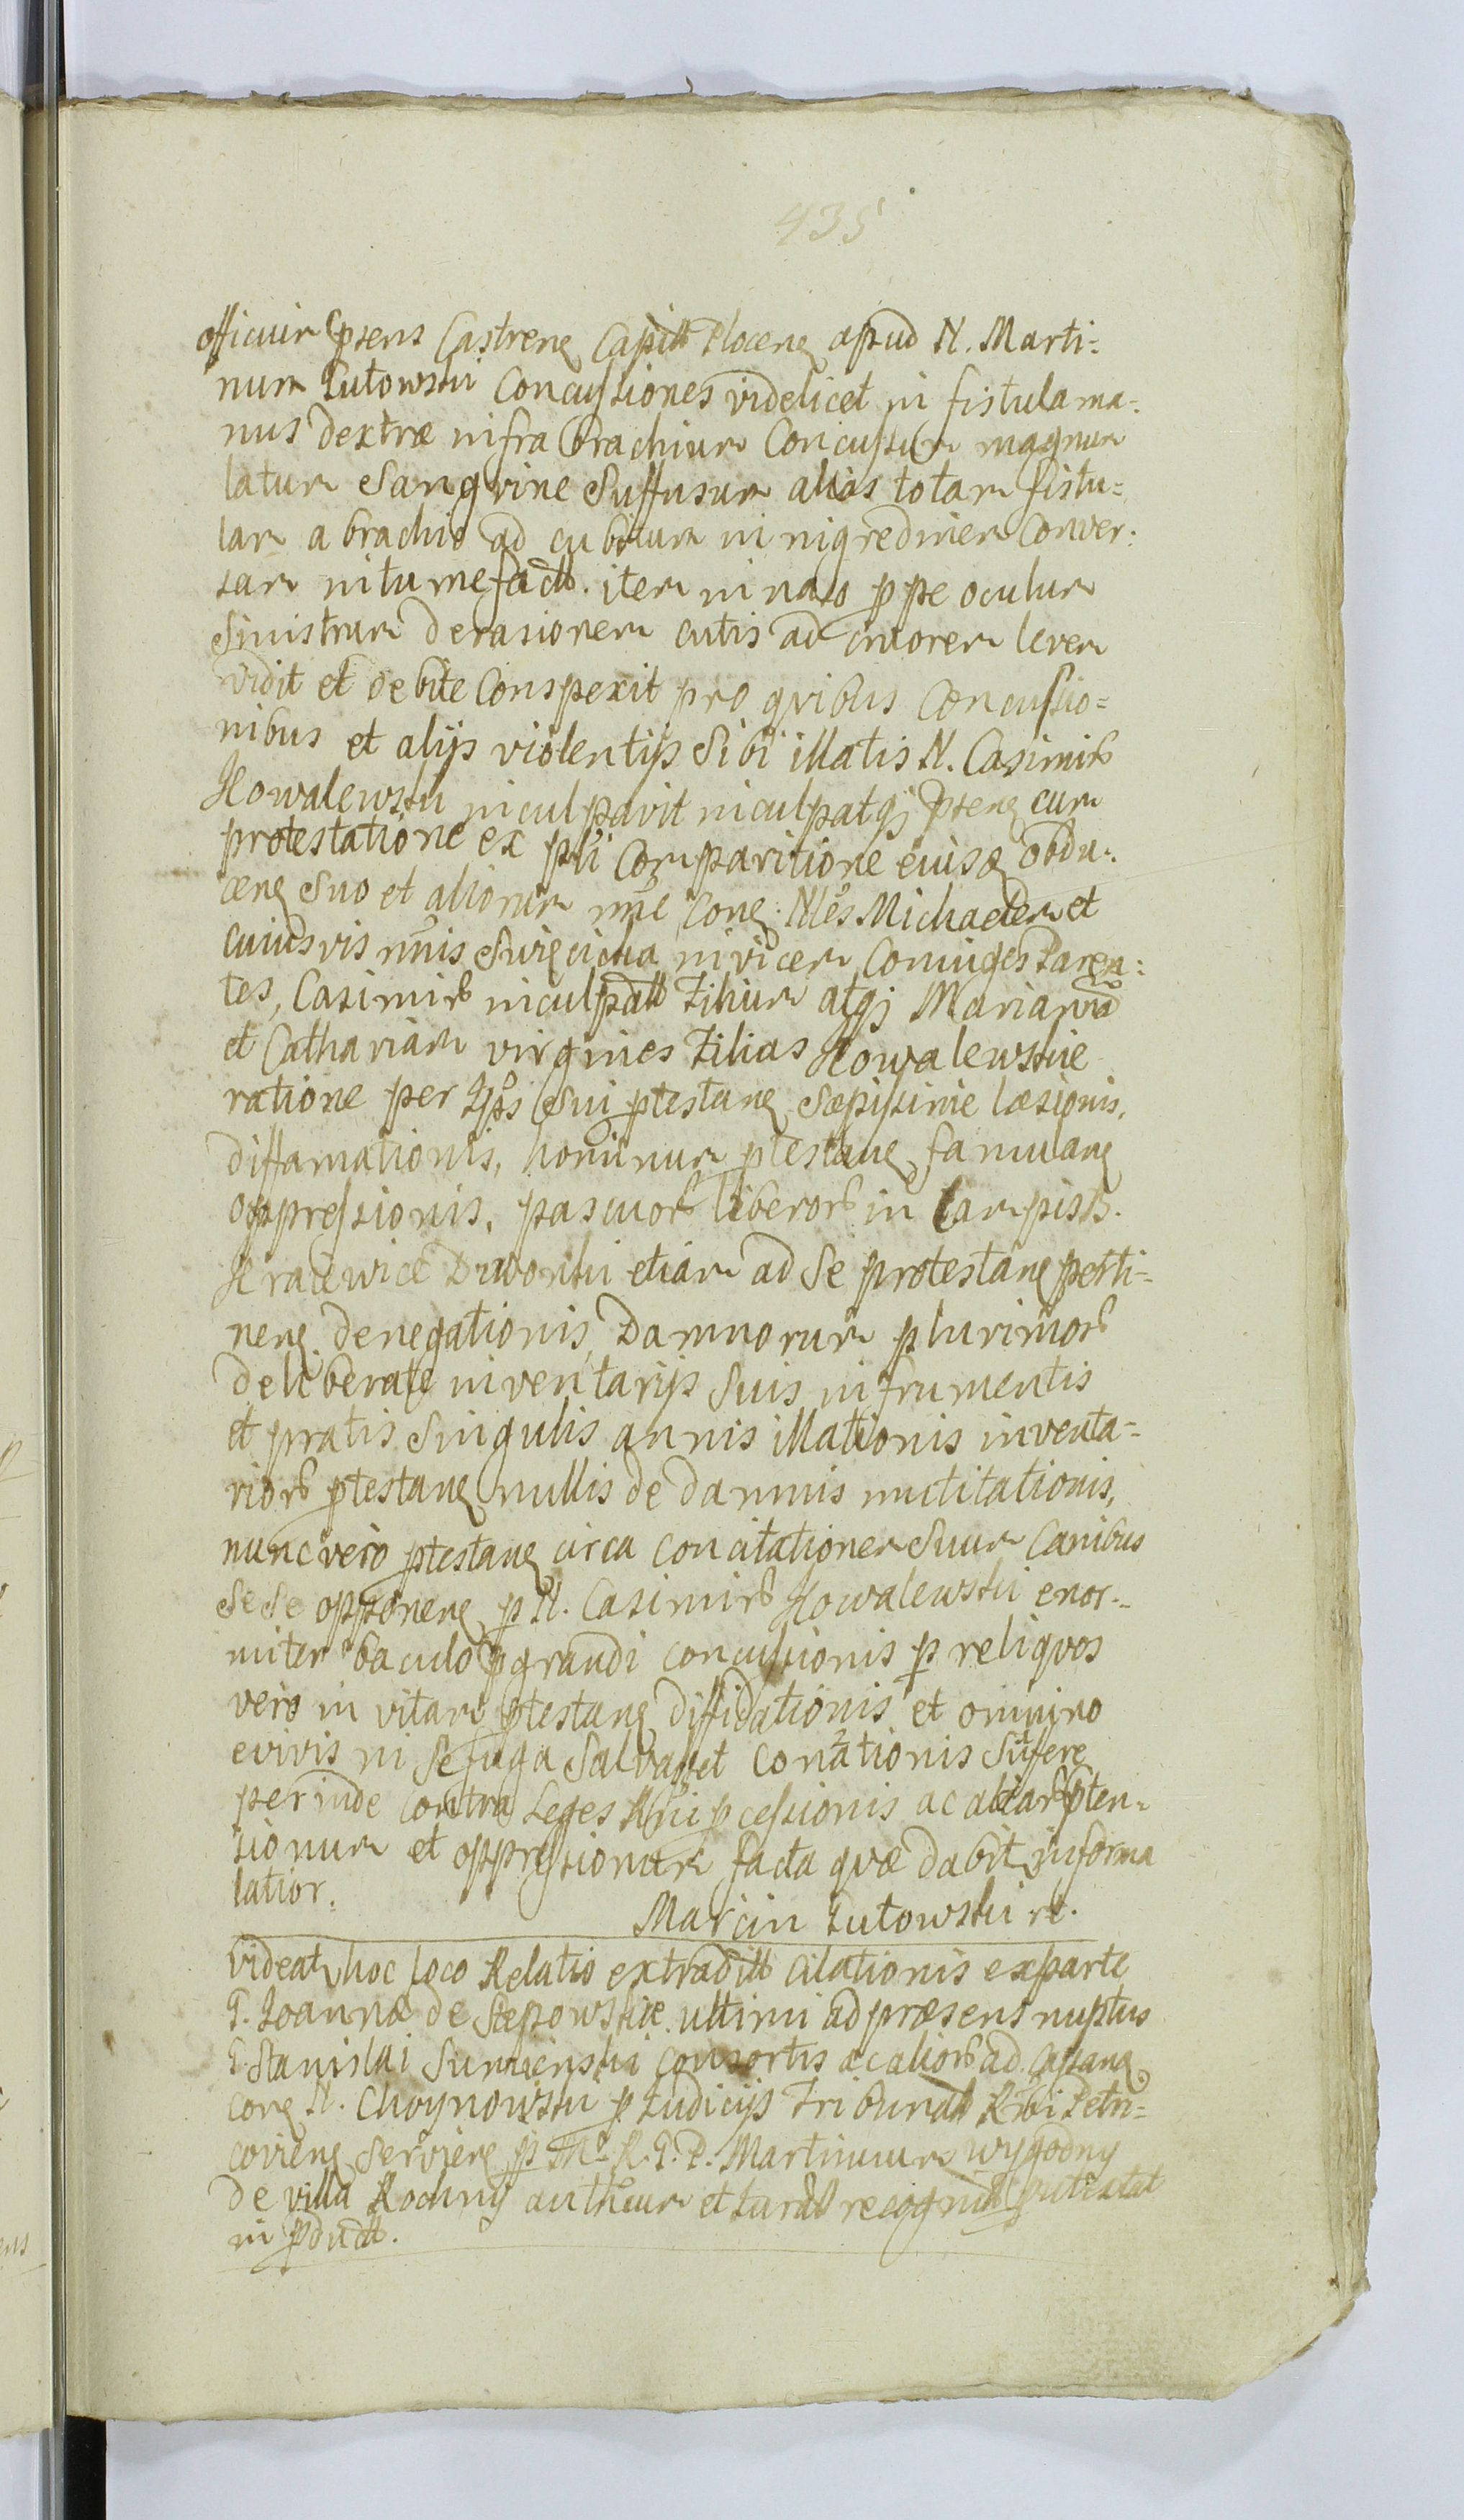 435
officium p̄sens Castren Capitł Płocen apud N. Marti=
num Lutowski Concussiones videlicet in fistula ma=
nus dextræ infra Brachium Concussum magnum
latum Sangvine Suffusum alias totam fistu=
lam a brachio ad cubitum in nigredinem Conver=
sam intumefactł. item in naso p̱pe oculum
Sinistrum derasionem cutis ad cruorem levem
vidit et debite Conspexit pro qvibus Concussio=
nibus et alijs violentijs Sibi illatis N. Casimirū
Kowalewski inculpavit inculpatq̨ p̄sens cum
protestatione ex p̄lī Comparitione eiusd̨ obdu=
cen Suo et aliorum nn̄e Con: Nłēs Michaelem et
cuiusvis nn̄is invicem Coniuges Paren=
tes, Casimirū inculpatū Filium atq̨ Mariannā
et Cathariam virgines Filias Kowalewskie
ratione per Ip̄ōs Sui p̱testan Sæpissime læsionis,
diffamationis, hominum p̱testan famulan
oppressionis, pascuorū liberorū in Campis B.
Kracewice Dworski etiam ad Se protestan perti=
nen denegationis, Damnorum plurimorū
deliberate inventarijs Suis in frumentis
et pratis Singulis annis illationis inventa=
riorū p̱testan nullis de damnis
nunc vero p̱testan circa concitationem Suum Canibus
Se Se opponen p̱ N. Casimirū Kowalewski enor=
miter baculo p̱grandi concussionis p̱ reliqvos
vero in vitam p̱testan diffidationis et omnino
evivis ni Se fuga Salvasset conationis
perinde contra Leges Rgni p̱cessionis ac aliarū p̄ten=
sionum et oppressionum facta qvæ dabit informa
latior.
Marcin Lutowski rt.
videatr hoc loco Relatio extraditł Citationis exparte
G. Joannæ de Stępowskie ultimi ad præsens nuptus
G. Stanislai Sumienski consortis ac aliorū ad Cassan
con N. Choynowski p̱ Judicijs Tribunał Rgni Petri=
covien Servien p̱ Mł. R. G. P. Martinum wygodny
de villa Rochny authcum et Jurał recognitł
in p̱ductł.